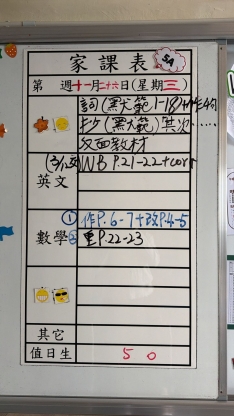 家課表
5A
第 週十一月二十六日(星期三)
詞(黑犬範)1-18)+作4句
抄(黑犬範)其次……
反面教材
英文 WB P21-22+corr
數學 ①作P.6-7+改P.4-5
②重P.22-23
其它
值日生 5 0